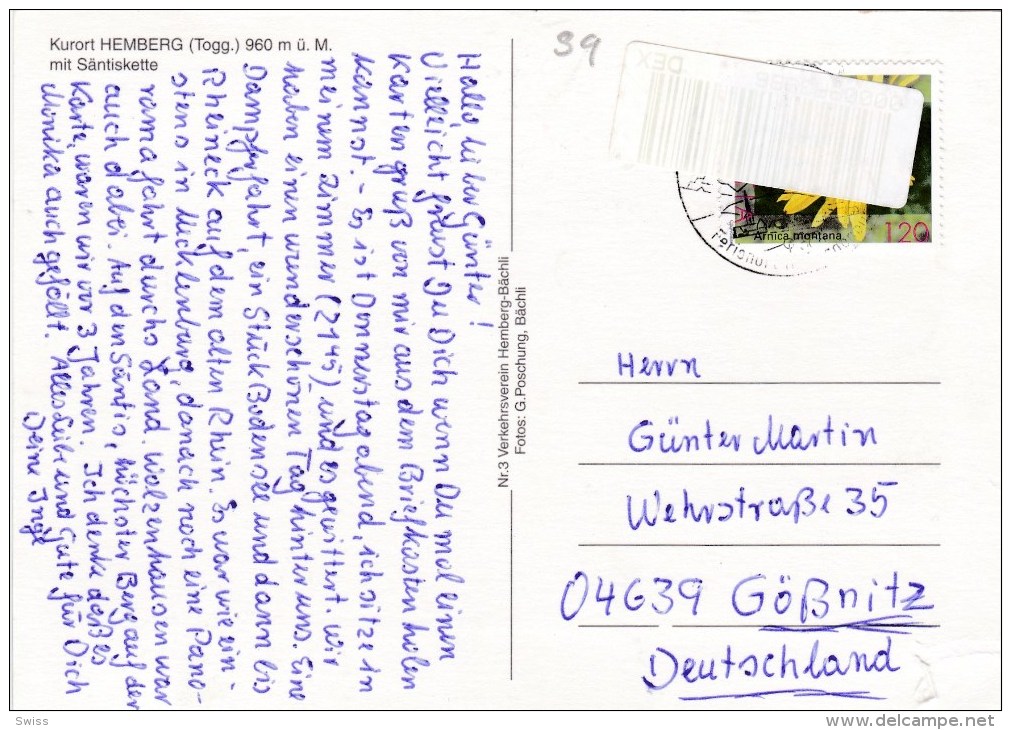 Kurort HEMBERG (Togg.) 960 m ü. M.
mit Säntiskette
Hallo lieber Günter!
Vielleicht freust Du Dich wenn Du mal einen
Kartengruß von mir aus dem Briefkasten holen
kannst. – Es ist Donnerstagabend, ich sitze in
meinem Zimmer (21⁴⁵) und es gewittert. Wir
haben einen wunderschönen Tag hinter uns. Eine
Dampffahrt, ein Stück Bodensee und dann bis
Rheineck auf dem alten Rhein. Es war wie ein-
stens in Mecklenburg, danach noch eine Pano-
ramafahrt durchs Land. Wolzenhausen war
auch dabei. Auf den Säntis, höchster Berg auf der
Karte, waren wir vor 3 Jahren. Ich denke daß es
Monika auch gefällt. Alles Liebe und Gute für Dich
Deine Inge
Nr.3 Verkehrsverein Hemberg-Bächli
Fotos: G.Poschung, Bächli
39
DEX
Arnica montana
120
Herrn
Günter Martin
Wehrstraße 35
04639 Gößnitz
Deutschland
Swiss
www.delcampe.net